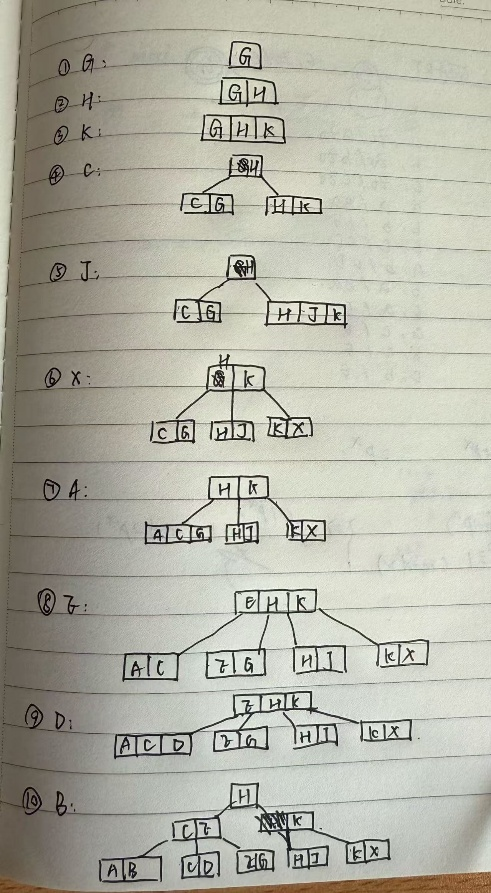 ① G: G
② H: G H
③ K: G H K
④ C: H
C G H K
⑤ J: H
C G H J K
H
⑥ X: K
C G H J K X
⑦ A: H K
A C G H J K X
⑧ E: E H K
A C E G H J K X
⑨ D: E H K
A C D E G H J K X
⑩ B: H
C E K
A B C D E G H J K X